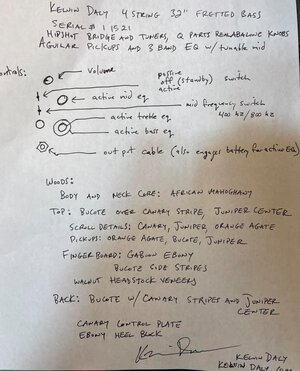 KELVIN DALY 4 STRING 32" FRETTED BASS
SERIAL # 11521
HIPSHOT BRIDGE AND TUNERS, Q PARTS REALABALONE KNOBS
AGUILAR PICKUPS AND 3 BAND EQ w/ tunable mid
ontrols:
volume
positive
off (standby) switch
active
active mid eq
mid frequency switch
400 hz/800 hz
active treble eq
active bass eq
out put cable (also engages battery for active EQ)
WOODS:
BODY AND NECK CORE: AFRICAN MAHOGHANY
TOP: BUCOTE OVER CANARY STRIPE, JUNIPER CENTER
SCROLL DETAILS: CANARY, JUNIPER, ORANGE AGATE
PICKUPS: ORANGE AGATE, BUCOTE, JUNIPER
FINGERBOARD: GABOON EBONY
BUCOTE SIDE STRIPES
WALNUT HEADSTOCK VENEERS
BACK: BUCOTE W/ CANARY STRIPES AND JUNIPER
CENTER
CANARY CONTROL PLATE
EBONY HEEL BLOCK
KELVIN DALY
KELVIN DALY